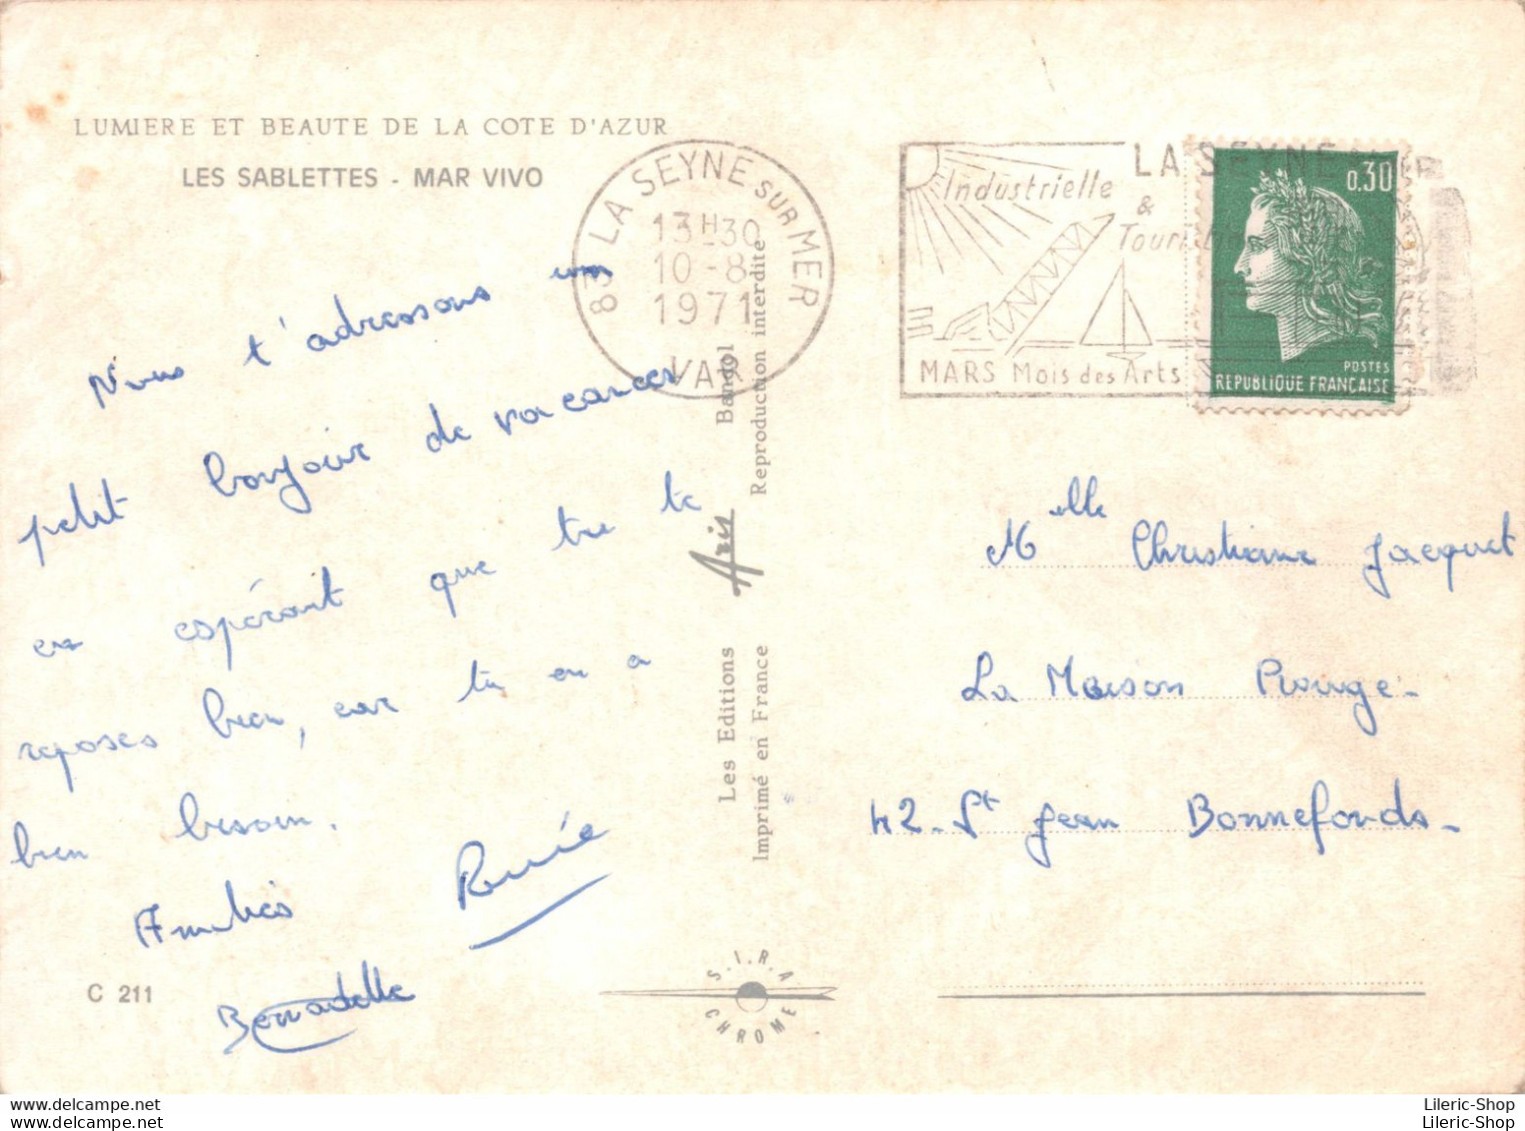 LUMIERE ET BEAUTE DE LA COTE D'AZUR
LES SABLETTES - MAR VIVO
Nous t'adressons un
petit bonjour de vacances
en espérant que tu te
reposes bien, car tu en a
bien besoin.
Amitiés
Renée
Bernadette
C 211
83 LA SEYNE SUR MER
13H30
10-8
1971
VAR
LA SEYNE SUR MER
Industrielle
&
Touristique
MARS Mois des Arts
0,30
POSTES
REPUBLIQUE FRANÇAISE
Les Editions Aris Bandol
Imprimé en France Reproduction interdite
S.I.R.A.
CHROME
Melle Christiane Jacquet
La Maison Rouge-
42-St Jean Bonnefonds-
new-card.delcampe.net
new-card.delcampe.net
Lileric-Shop
Lileric-Shop